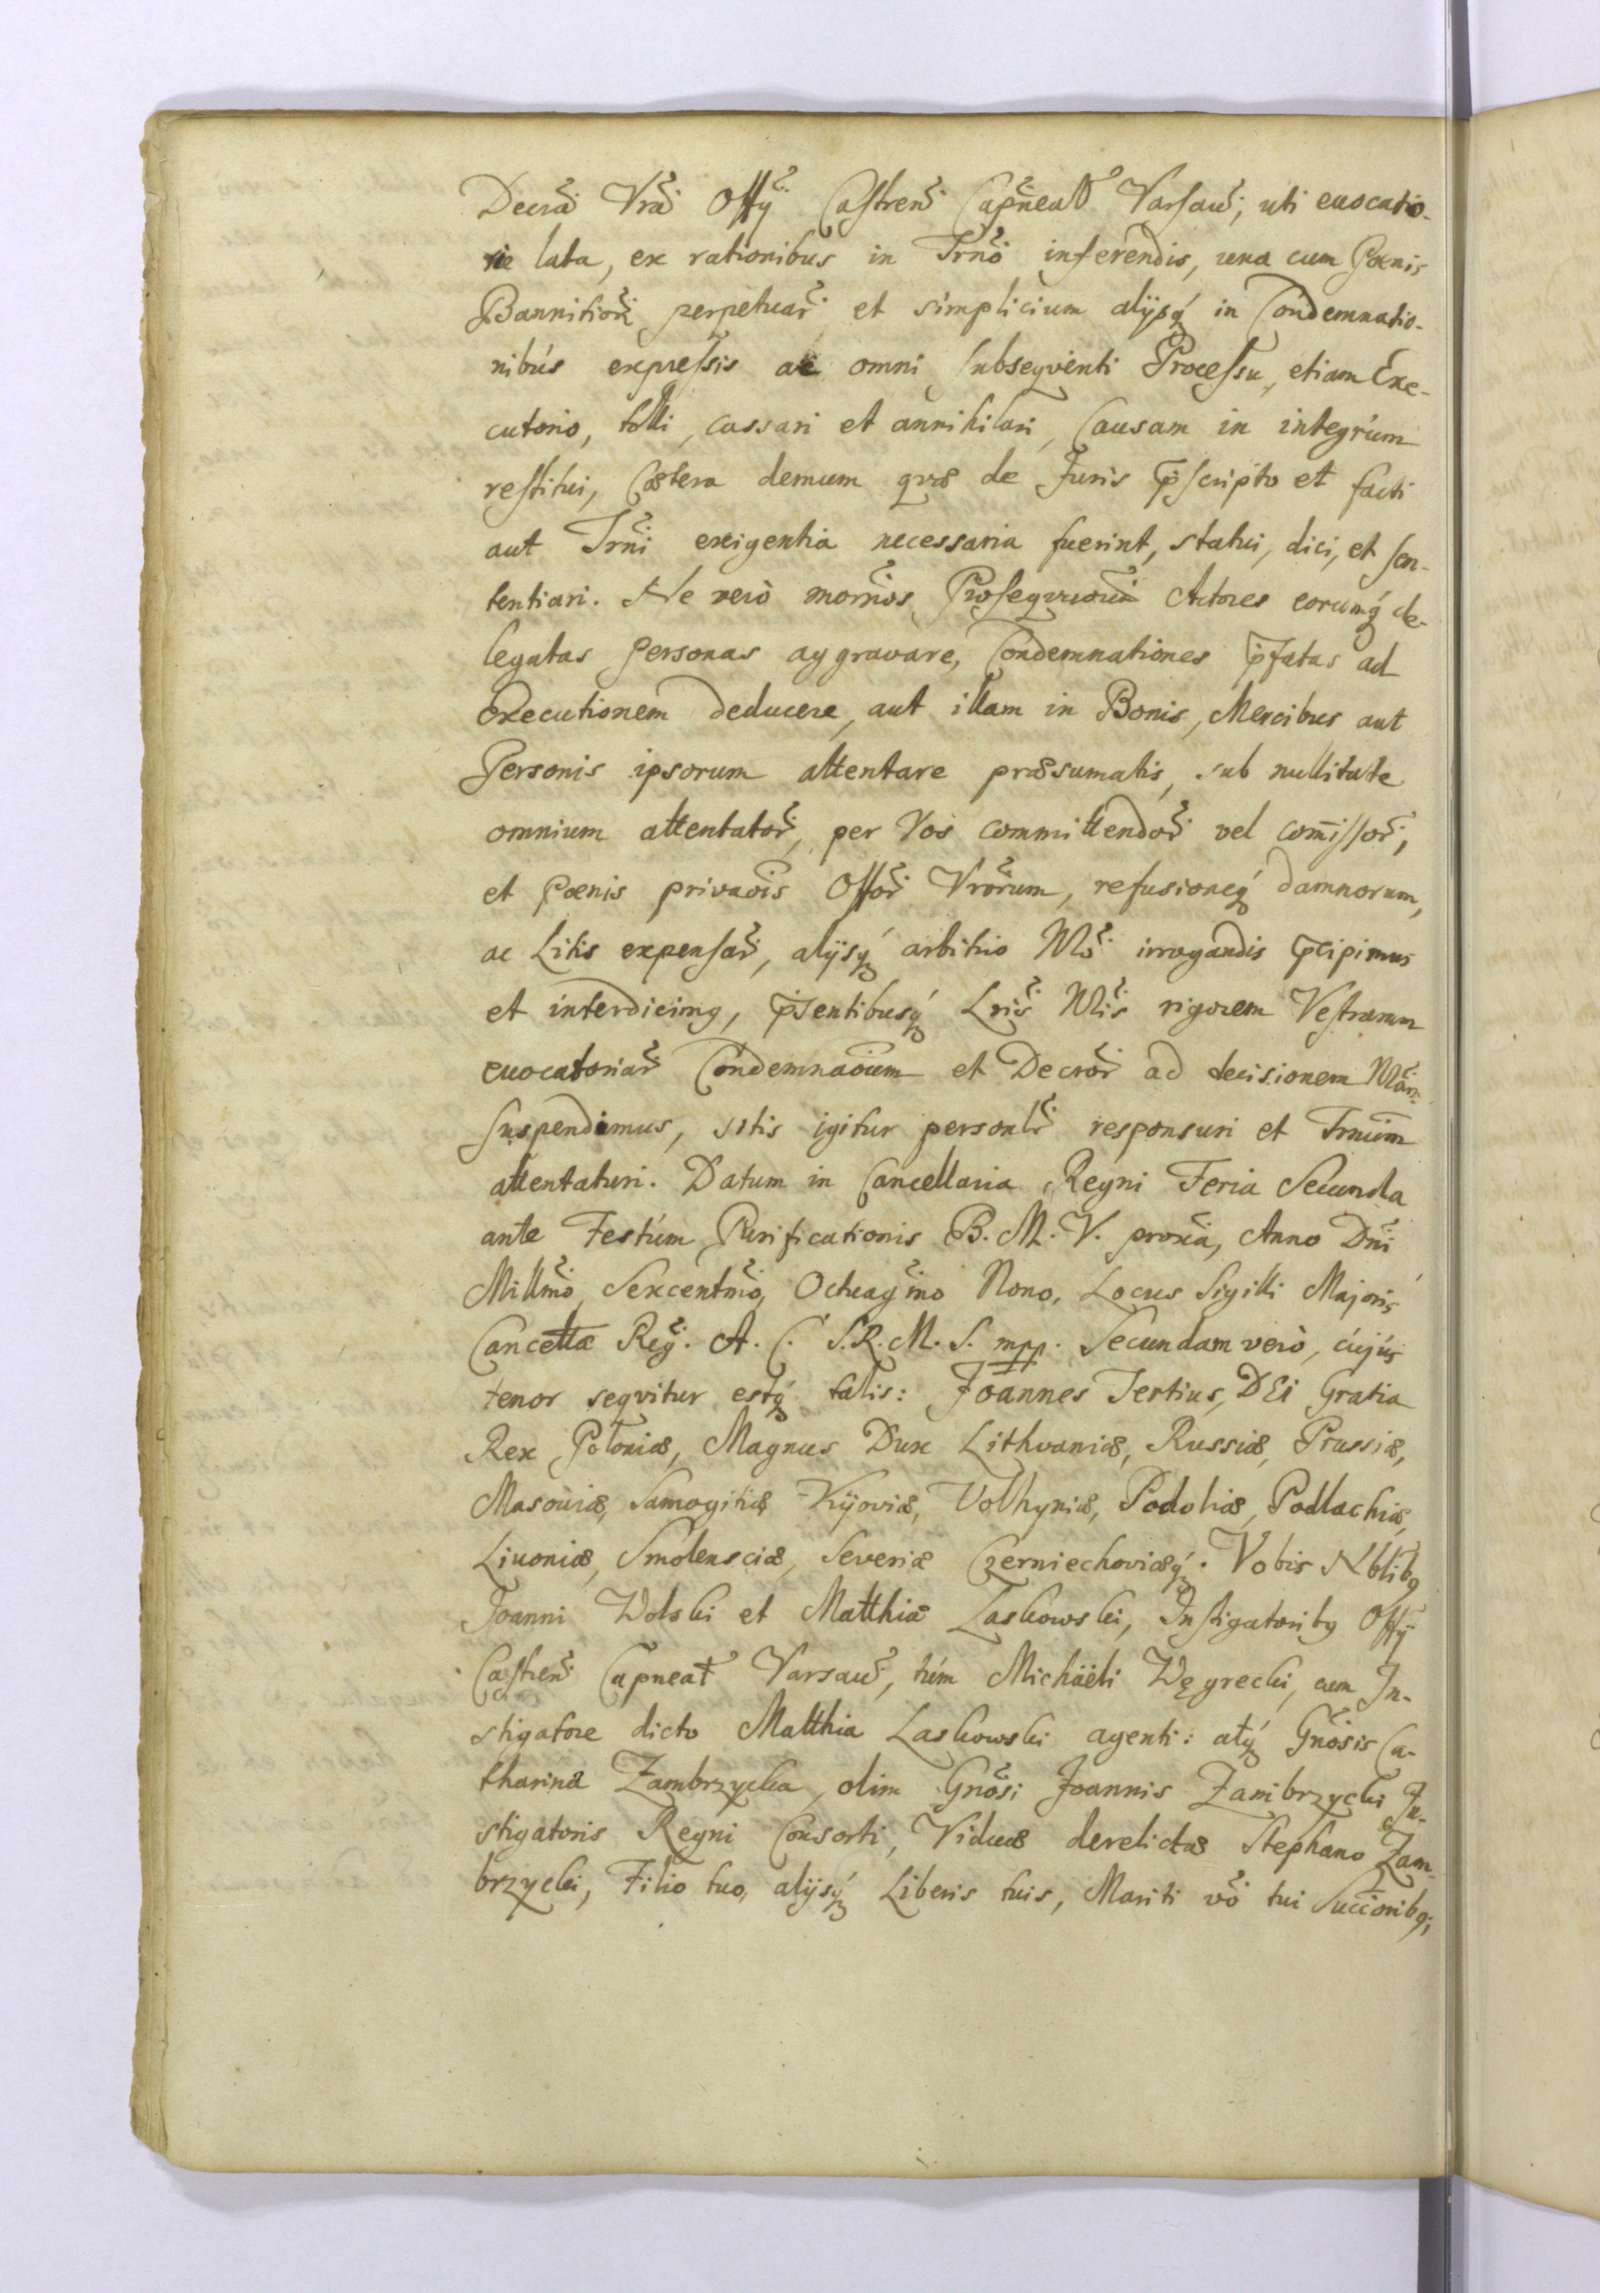 Decrā Vrā Offy Castren Capneał Varsau, uti euocatio-
nie lata, ex rationibus in Trnō inferendis, una cum Poenis
Bannitior perpetuar et simplicium alijsq́ in Condemnatio-
nibús expressis ac omni subseqventi Processu, etiam Exe-
cutorio, tolli, cassari et annihilari, Causam in integrúm
restitui, Cætera demum qvæ de Juris p̄scripto et facti
aut Trni exigentia necessaria fuerint, statui, dici, et sen-
tentiari. Ne verò Actores eorumq́ de-
legatas Personas aggravare, Condemnationes p̄fatas ad
Executionem deducere, aut illam in Bonis, Mercibus aut
Personis ipsorum attentare præsumatis, sub nullitate
omnium attentator, per Vos committendor vel com̄issor,
et Poenis privaōis Offor Vrōrum, refusioneq́ damnorum,
ac Litis expensar, alijsq́ arbitrio Nro irrogandis p̄cipimus
et interdicimg, p̄sentibusq́ Lris Nris rigorem Vestramm
euocatoriar Condemnaōum et Decror ad decisionem Nram
suspendimus, sitis igitur personlr responsuri et Trnum̄
attentaturi. Datum in Cancellaria Regni Feria Secunda
ante Festúm Purificationis B. M. V. proxā, Anno Dni
Millmō Sexcentmō, Octuagmo Nono, Locus Sigilli Majoris
Cancellæ Reg. A. C. S. R. M. S. mpp. Secundam verò, cújús
tenor seqvitur estq́ talis: Joannes Tertius, DEi Gratia
Rex Poloniæ, Magnus Dux Lithvaniæ, Russiæ, Prussiæ,
Masouiæ, Samogitiæ Kijoviæ, Volhyniæ, Podoliæ, Podlachiæ,
Liuoniæ, Smolensciæ, Severiæ Czerniechoviæq́. Vobis Nblibg
Joanni Wolski et Matthiæ Laskowski, Instigatoribg Offy
Castren Capneał Varsau, túm Michaëli Węgrecki, cum In-
stigatore dicto Matthia Laskowski agenti: atq́ Gnōsis Ca-
tharinæ Zambrzycka, olim Gnōsi Joannis Zambrzycki In-
stigatoris Regni Consorti, Viduæ derelictæ Stephano Zam-
brzycki, Filio tuo, alijsq́ Liberis tuis, Mariti vō tui Succōribg,